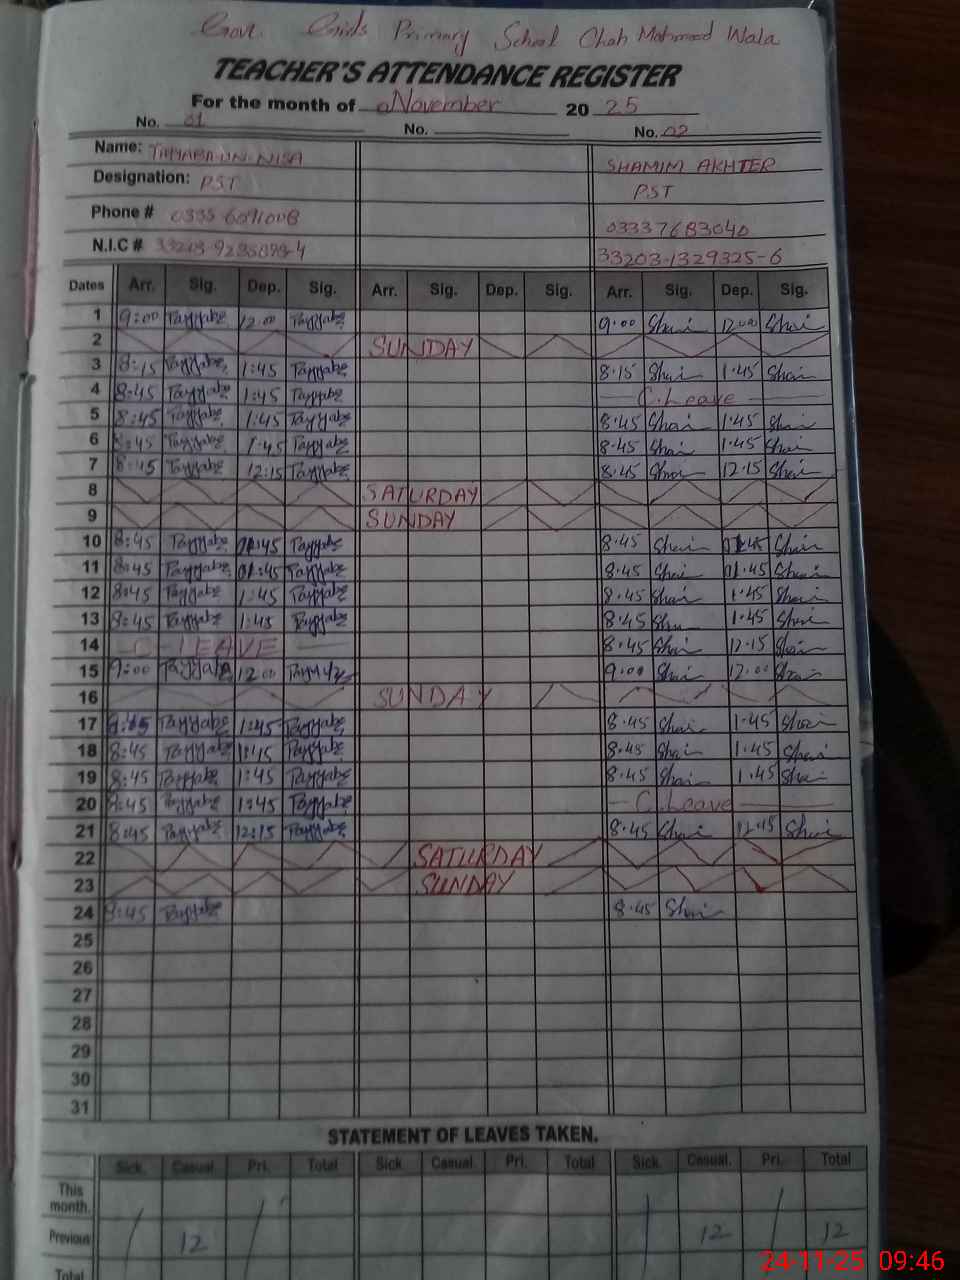 Govt. Girls Primary School Chah Mahmood Wala
TEACHER'S ATTENDANCE REGISTER
For the month of November 20 25
No. 01 No. No. 02
Name: TAYYABA-UN-NISA SHAMIM AKHTER
Designation: PST PST
Phone # 0333 6091008 03337683040
N.I.C # 33203-1329325-6
Dates Arr. Sig. Dep. Sig. Arr. Sig. Dep. Sig. Arr. Sig. Dep. Sig.
1 9:00 Tayyaba 12:00 Tayyaba 9.00 Shai 12.00 Shai
2 SUNDAY
3 8:15 Tayyaba 1:45 Tayyaba 8.15 Shai 1.45 Shai
4 8:45 Tayyaba 1:45 Tayyaba C.Leave
5 8:45 Tayyaba 1:45 Tayyaba 8.45 Shai 1.45 Shai
6 8:45 Tayyaba 1:45 Tayyaba 8.45 Shai 1.45 Shai
7 8:45 Tayyaba 12:15 Tayyaba 8.45 Shai 12.15 Shai
8 SATURDAY
9 SUNDAY
10 8:45 Tayyaba 01:45 Tayyaba 8.45 Shai 01.45 Shai
11 8:45 Tayyaba 01:45 Tayyaba 8.45 Shai 01.45 Shai
12 8:45 Tayyaba 1:45 Tayyaba 8.45 Shai 1.45 Shai
13 8:45 Tayyaba 1:45 Tayyaba 8.45 Shai 1.45 Shai
14 C-LEAVE 8.45 Shai 12.15 Shai
15 9:00 Tayyaba 12:00 Tayyaba 9.00 Shai 12.00 Shai
16 SUNDAY
17 8:45 Tayyaba 1:45 Tayyaba 8.45 Shai 1.45 Shai
18 8:45 Tayyaba 1:45 Tayyaba 8.45 Shai 1.45 Shai
19 8:45 Tayyaba 1:45 Tayyaba 8.45 Shai 1.45 Shai
20 8:45 Tayyaba 1:45 Tayyaba C.Leave
21 8:45 Tayyaba 12:15 Tayyaba 8.45 Shai 12.15 Shai
22 SATURDAY
23 SUNDAY
24 8:45 Tayyaba 8.45 Shai
25
26
27
28
29
30
31
STATEMENT OF LEAVES TAKEN.
Sick. Casual. Pri. Total Sick Casual. Pri. Total Sick. Casual. Pri. Total
This month.
Previous 12 12 12
Total
24-11-25 09:46